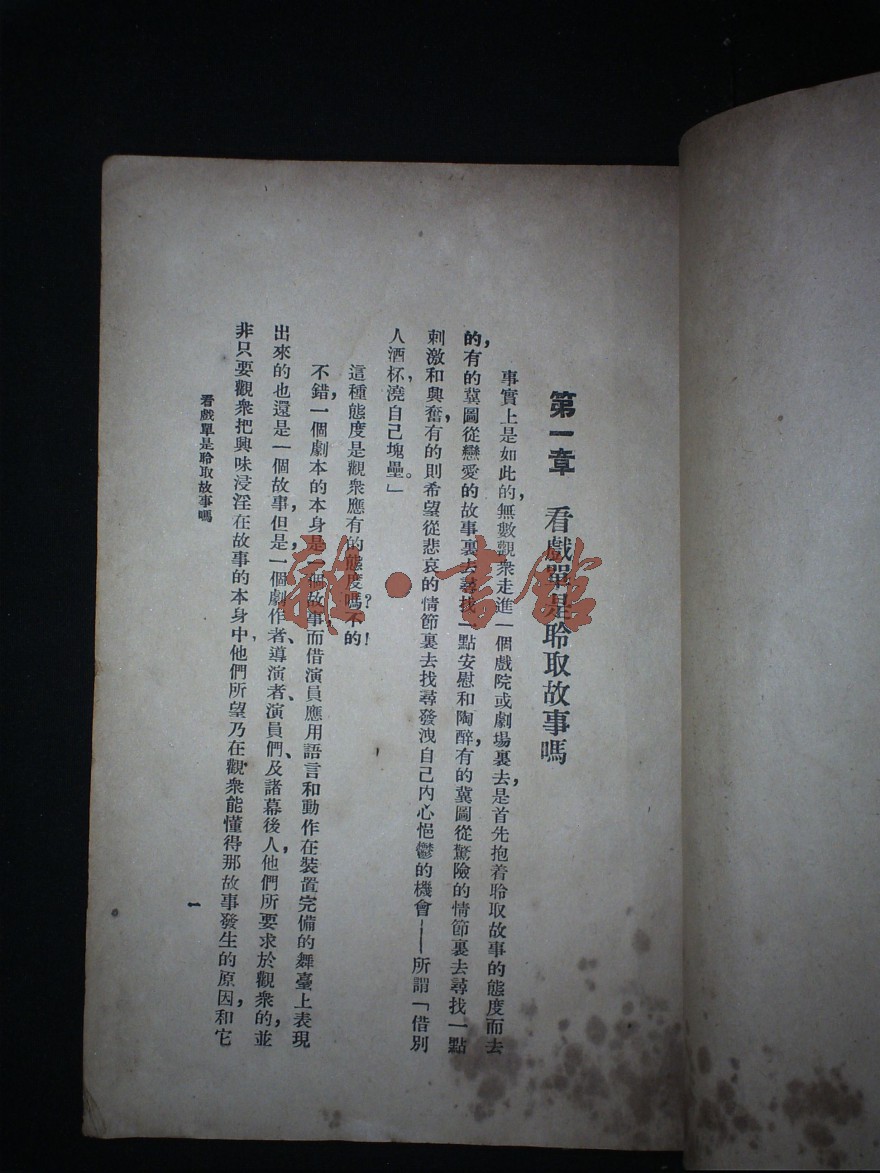 第一章　看戲單是聆取故事嗎
事實上是如此的，無數觀衆走進一個戲院或劇場裏去，是首先抱着聆取故事的態度而去
的，有的冀圖從戀愛的故事裏去尋找一點安慰和陶醉，有的冀圖從驚險的情節裏去尋找一點
刺激和興奮，有的則希望從悲哀的情節裏去找尋發洩自己內心悒鬱的機會——所謂「借別
人酒杯，澆自己塊壘。」
這種態度是觀衆應有的態度嗎？不的！
不錯，一個劇本的本身是一個故事，而借演員應用語言和動作在裝置完備的舞臺上表現
出來的也還是一個故事，但是，一個劇作者、導演者、演員們、及諸幕後人，他們所要求於觀衆的，並
非只要觀衆把興味浸淫在故事的本身中，他們所望乃在觀衆能懂得那故事發生的原因，和它
看戲單是聆取故事嗎
一
雜·書館